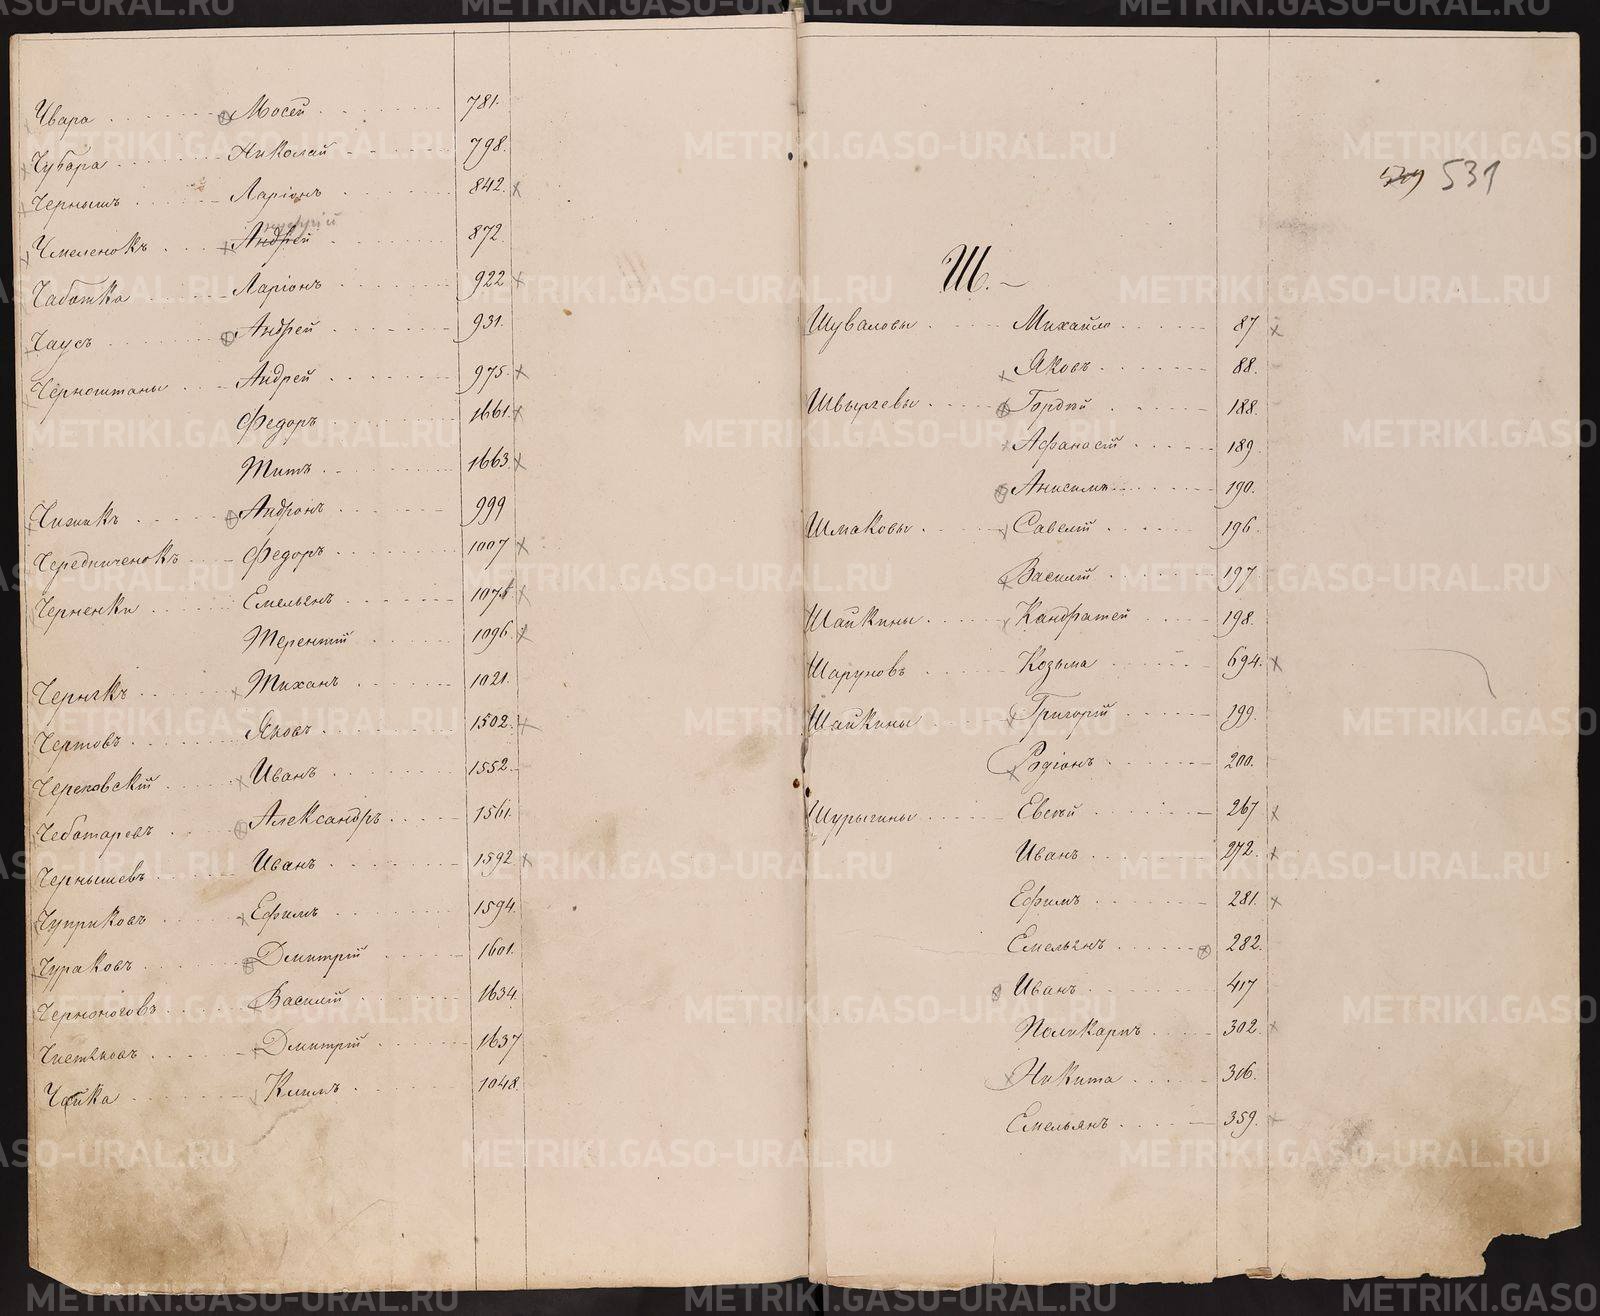 Чвара Мосей 781.
Чубара Николай 798.
Чернышъ Ларіонъ 842.
Чмеленокъ Андрей 872.
Чаботка Ларіонъ 922
Чаусъ Андрей 931.
Черноштаны Андрей 975.
Федоръ 1661.
Титъ 1663.
Чижикъ Андронъ 999
Чередниченокъ Федоръ 1007
Черненки Емельянъ
Терентій 1096.
Чернякъ Тиханъ 1021.
Чертовъ Яковъ 1502.
Иванъ 1552.
Чеботаревъ Александръ 1561.
Чернышевъ Иванъ 1592
Чуприковъ Ефимъ 1594.
Чураковъ Дмитрій 1601.
Черноноговъ Василій 1634.
Чистяковъ Дмитрій 1637
Чайка Климъ 1048.
531
Ш.
Шуваловы Михайло 87
Яковъ 88.
Швыргевы Гордѣй 188.
Афанасій 189.
Анисимъ 190.
Шмаковы Савелій 196.
Василій 197
Шайкины Кандратей 198.
Шаруновъ Козьма 694.
Шайкины Григорій 199.
Родіонъ 200.
Шурыгины Евсѣй 267
Иванъ 272.
Ефимъ 281.
Емельянъ 282.
Иванъ 417
Поликарпъ 302.
Никита 316.
Емельянъ 359.
METRIKI.GASO-URAL.RU